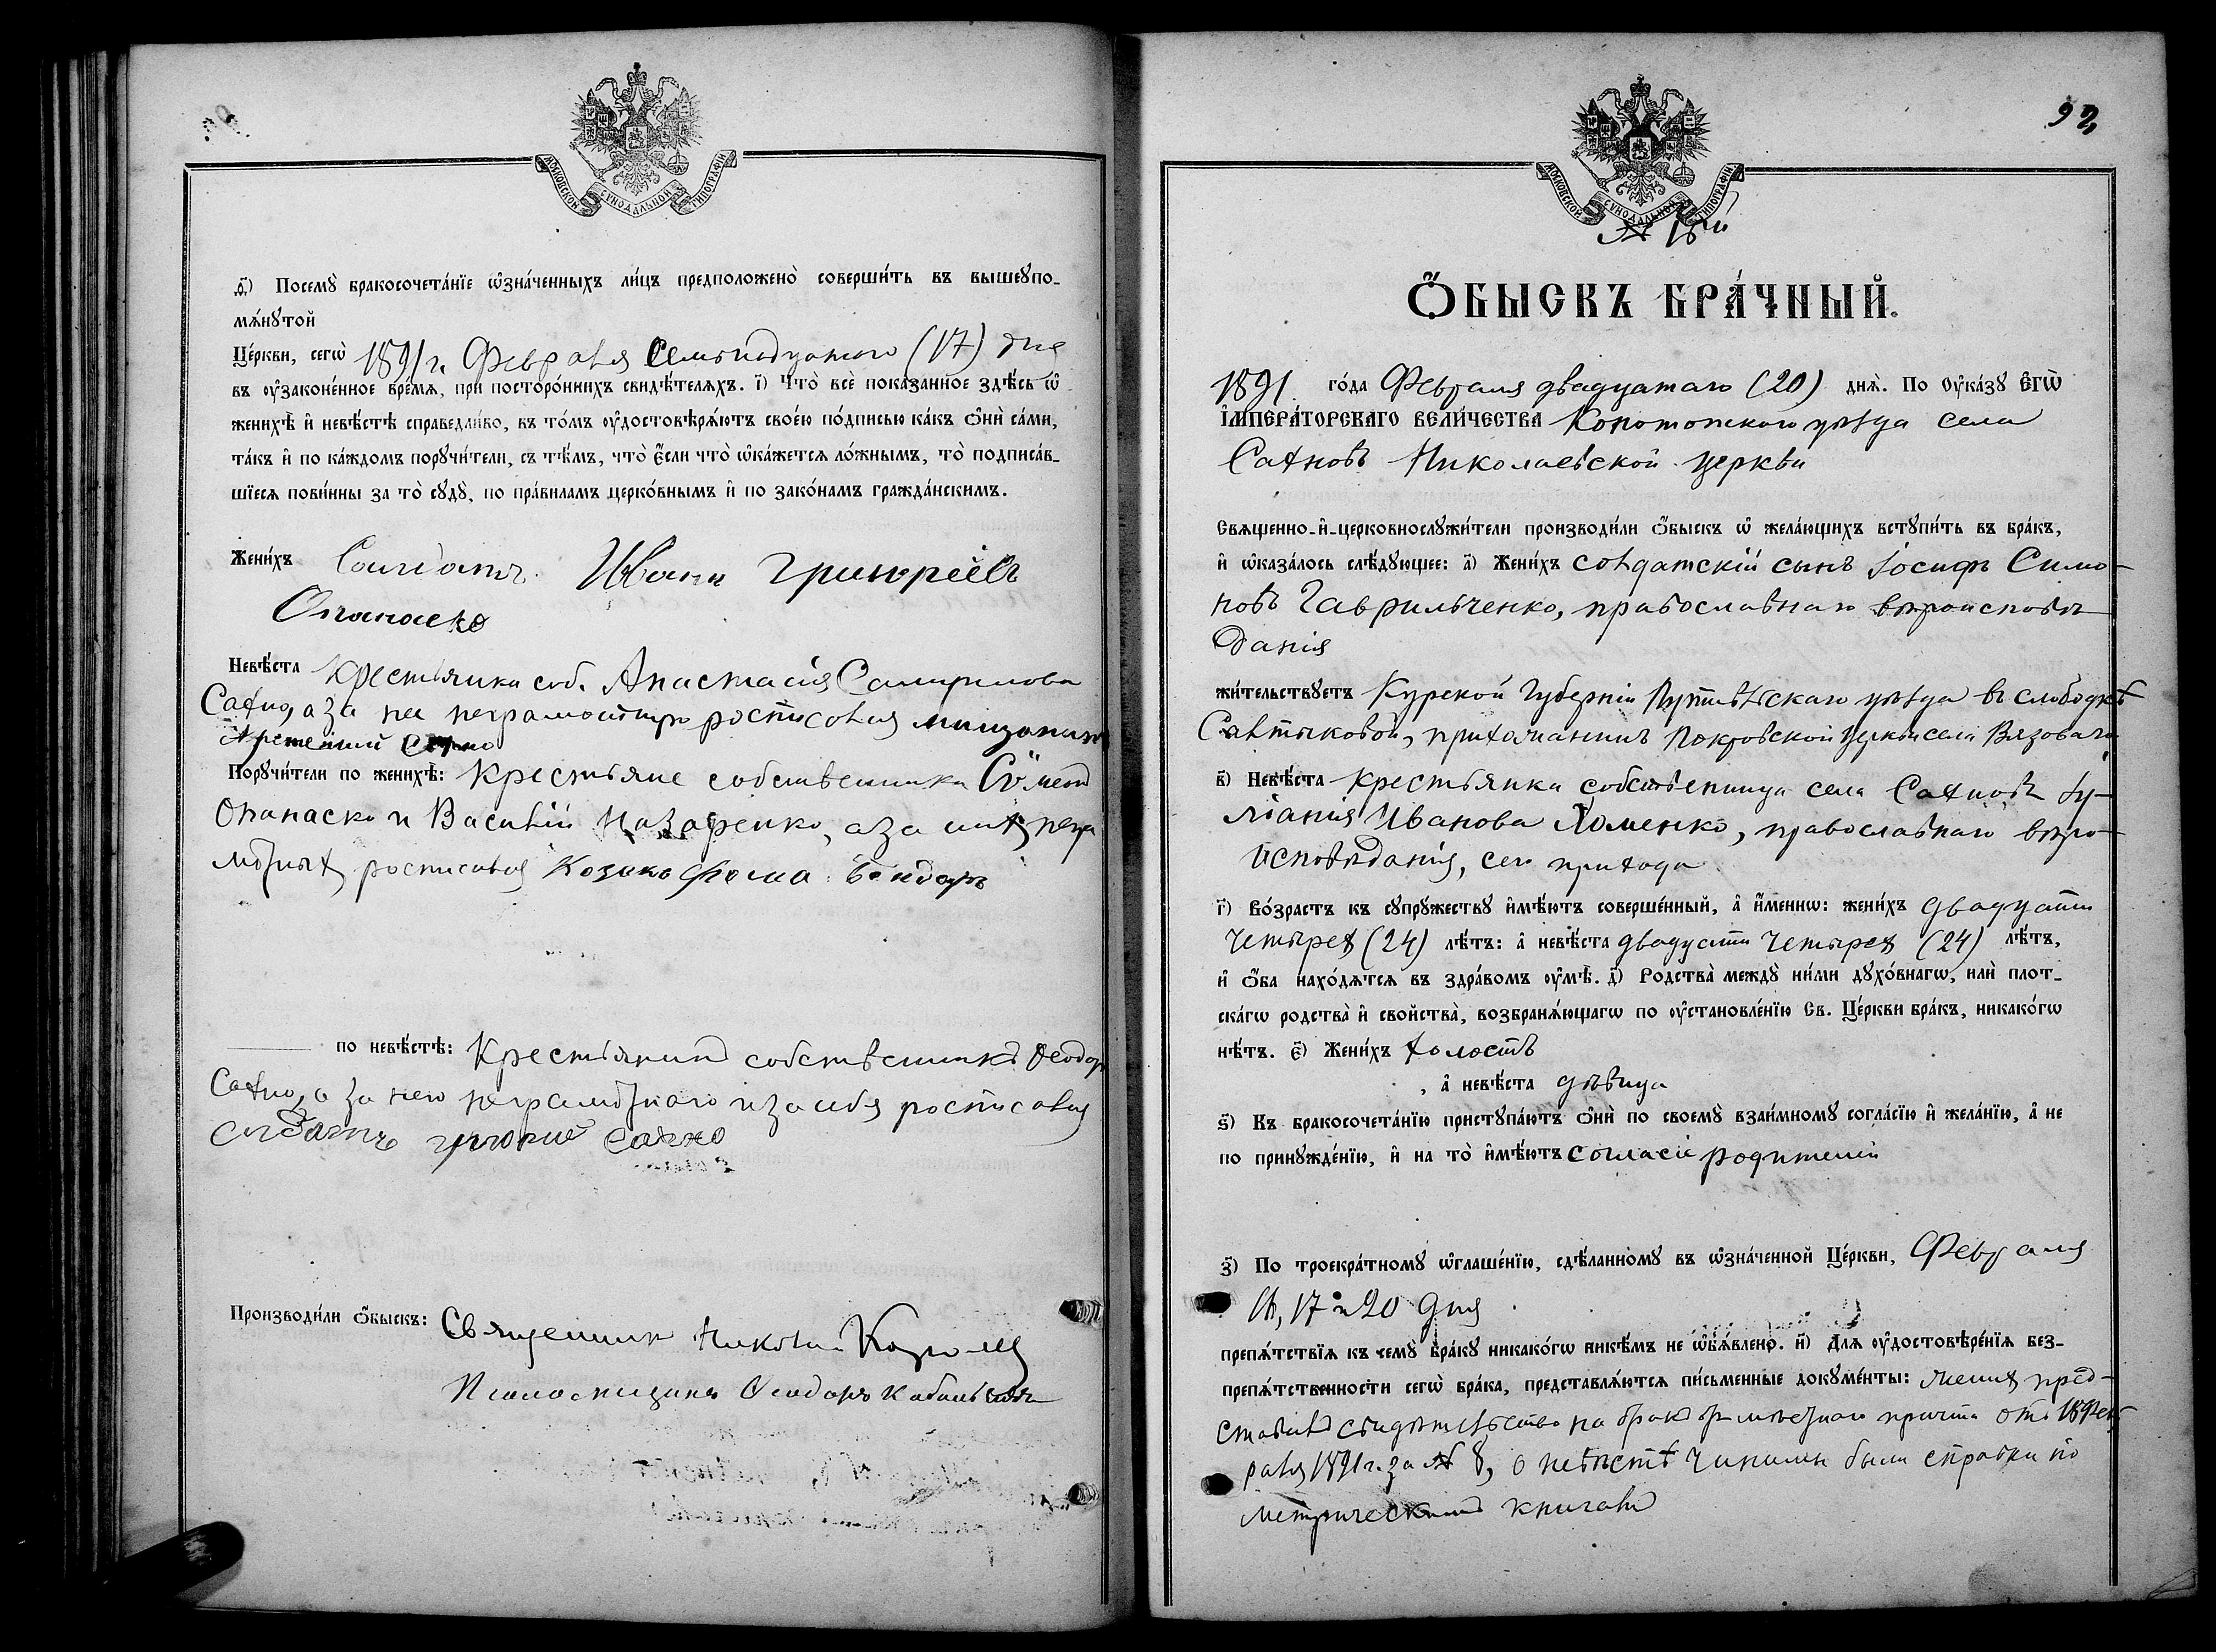 МОСКОВСКОЙ СѴНОДАЛЬНОЙ ТИПОГРАФІИ
ѳ҃) Посемꙋ̀ бракосочета́нїе ѡ҆зна́ченныхъ ли́цъ предположено̀ соверши́ть въ вышеꙋпо-
мѧ́нꙋтой
Це́ркви, сегѡ̀ 1891 г. Февраля Семьнадцатаго (17) дня
въ ᲂу҆законе́нное вре́мѧ, при посторо́ннихъ свидѣ́телѧхъ. і҃) Что̀ всѐ пока́занное здѣ́сь ѡ҆
женихѣ̀ и҆ невѣ́стѣ справедли́во, въ то́мъ ᲂу҆достовѣрѧ́ютъ свое́ю по́дписью ка́къ ѻ҆нѝ са́ми,
та́къ и҆ по ка́ждомъ порꙋчи́тели, съ тѣ́мъ, что̀ є҆́сли что̀ ѡ҆ка́жетсѧ ло́жнымъ, то̀ подписа́в-
шїесѧ пови́нны за то̀ сꙋдꙋ̀, по пра́виламъ церко́внымъ и҆ по зако́намъ гражда́нскимъ.
Жени́хъ Солдатъ Иванъ Григореевъ
Опанаско
Невѣ́ста Крестьянка соб. Анастасія
Сахно, а за нее неграмотную росписовся мищанинъ
Порꙋчи́тели по женихѣ̀: Крестьяне собственники
Опанаско и Василій Назаренко, а за нихъ негра
мотныхъ росписовся Козакъ Фома Бондарь
по невѣ́стѣ: Крестьянинъ собственникъ Ѳеодоръ
Сахно, а за него неграмотнаго и за себя росписовся
Солдатъ Григорие Сахно
Производи́ли ѻ҆́быскъ: Священникъ Николай
Псаломщикъ Ѳеодоръ
92
МОСКОВСКОЙ СѴНОДАЛЬНОЙ ТИПОГРАФІИ
№ 15й
Ѻ҆́БЫСКЪ БРА́ЧНЫЙ.
1891 го́да Февраля двадцатаго (20) днѧ̀. По ᲂу҆ка́зꙋ Є҆ГѠ̀
І҆МПЕРА́ТОРСКАГО ВЕЛИ́ЧЕСТВА Конотопскаго уѣзда села
Сахновъ Николаевской церкви
Свѧщенно-и҆-церковнослꙋжи́тели производи́ли ѻ҆́быскъ ѡ҆ жела́ющихъ встꙋпи́ть въ бра́къ,
и҆ ѡ҆каза́лось слѣ́дꙋющее: а҃) Жени́хъ солдатскій сынъ Іосифъ Симо-
новъ Гаврильченко, православнаго вѣроисповѣ-
данія
жи́тельствꙋетъ Курской Губерніи Путивльскаго уѣзда въ слободкѣ
Салтыковой, прихожанинъ Покровской церкви села Вязоваго
в҃) Невѣ́ста крестьянка собственница села Сахновъ Іу-
ліанія Иванова Хоменко, православнаго вѣро-
исповѣданія, сего прихода
г҃) Во́зрастъ къ сꙋпрꙋ́жествꙋ и҆мѣ́ютъ соверше́нный, а҆ и҆́меннѡ: жени́хъ двадцати
четырехъ (24) лѣ́тъ: а҆ невѣ́ста двадцати четырехъ (24) лѣ́тъ,
и҆ ѻ҆́ба нахо́дѧтсѧ въ здра́вомъ ᲂу҆мѣ̀. д҃) Родства̀ междꙋ̀ ни́ми дꙋхо́внагѡ, илѝ плот-
ска́гѡ родства̀ и҆ свойства̀, возбранѧ́ющагѡ по ᲂу҆становле́нїю Св. Це́ркви бра́къ, никако́гѡ
нѣ́тъ. є҃) Жени́хъ холостъ
, а҆ невѣ́ста дѣвица
ѕ҃) Къ бракосочета́нїю пристꙋпа́ютъ ѻ҆нѝ по своемꙋ̀ взаи́мномꙋ согла́сїю и҆ жела́нїю, а҆ не
по принꙋжде́нїю, и҆ на то̀ и҆мѣ́ютъ согласіе родителей
з҃) По троекра́тномꙋ ѡ҆глаше́нїю, сдѣ́ланномꙋ въ ѡ҆зна́ченной Це́ркви, Февраля
16, 17 и 20 дня
препѧ́тствїѧ къ чемꙋ̀ бра́кꙋ никако́гѡ никѣ́мъ не ѡ҆б̾ѧ́влено. и҃) Длѧ ᲂу҆достовѣре́нїѧ без-
препѧ́тственности сегѡ̀ бра́ка, представлѧ́ютсѧ пи́сьменные докꙋме́нты: жених пред-
ставилъ свидѣтельство на бракъ отъ мѣстнаго причта отъ 18 Фев-
раля 1891 г. за № 8, о невѣстѣ чинимы были справки по
метрическимъ книгамъ